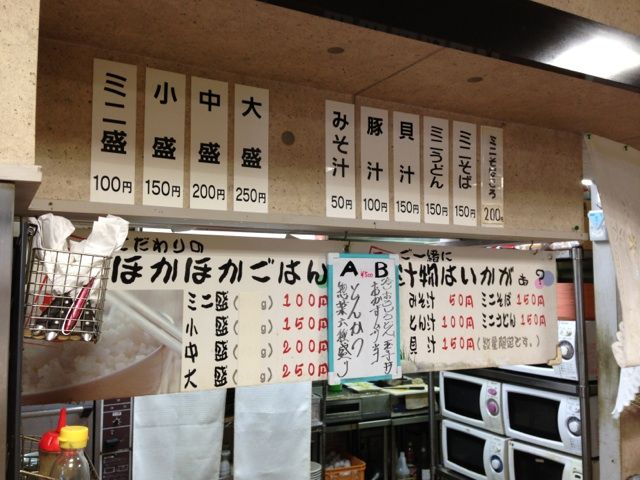 ミニ盛 100円
小盛 150円
中盛 200円
大盛 250円
みそ汁 50円
豚汁 100円
貝汁 150円
ミニうどん 150円
ミニそば 150円
200
こだわりの
ほかほかごはん
ミニ盛( g) 100円
小盛( g) 150円
中盛( g) 200円
大盛( g) 250円
A B
とんかつ
ご一緒に
汁物はいかがぁ?
みそ汁 50円 ミニそば 150円
とん汁 100円 ミニうどん 150円
貝汁 150円(数量限定です。)